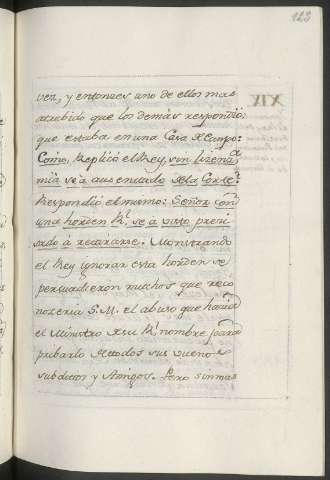 123
vez, y entonzes uno de ellos mas
atrebido que los demás respondió:
que estaba en una Casa de Campo:
Como, Replicó el Rey, sin lizena
mia se á ausentado de la Corte?
Respondió el mismo: Señor con
una horden Rl. se á visto preci
sado á retirarse. Monstrando
el Rey ignorar esta horden se
persuadieron muchos que reco
nozeria S. M. el abuso que hacia
el Ministro de su Rl. nombre para
pribarlo de todos sus bueno s
subditos y Amigos. Pero sin mas
XIV